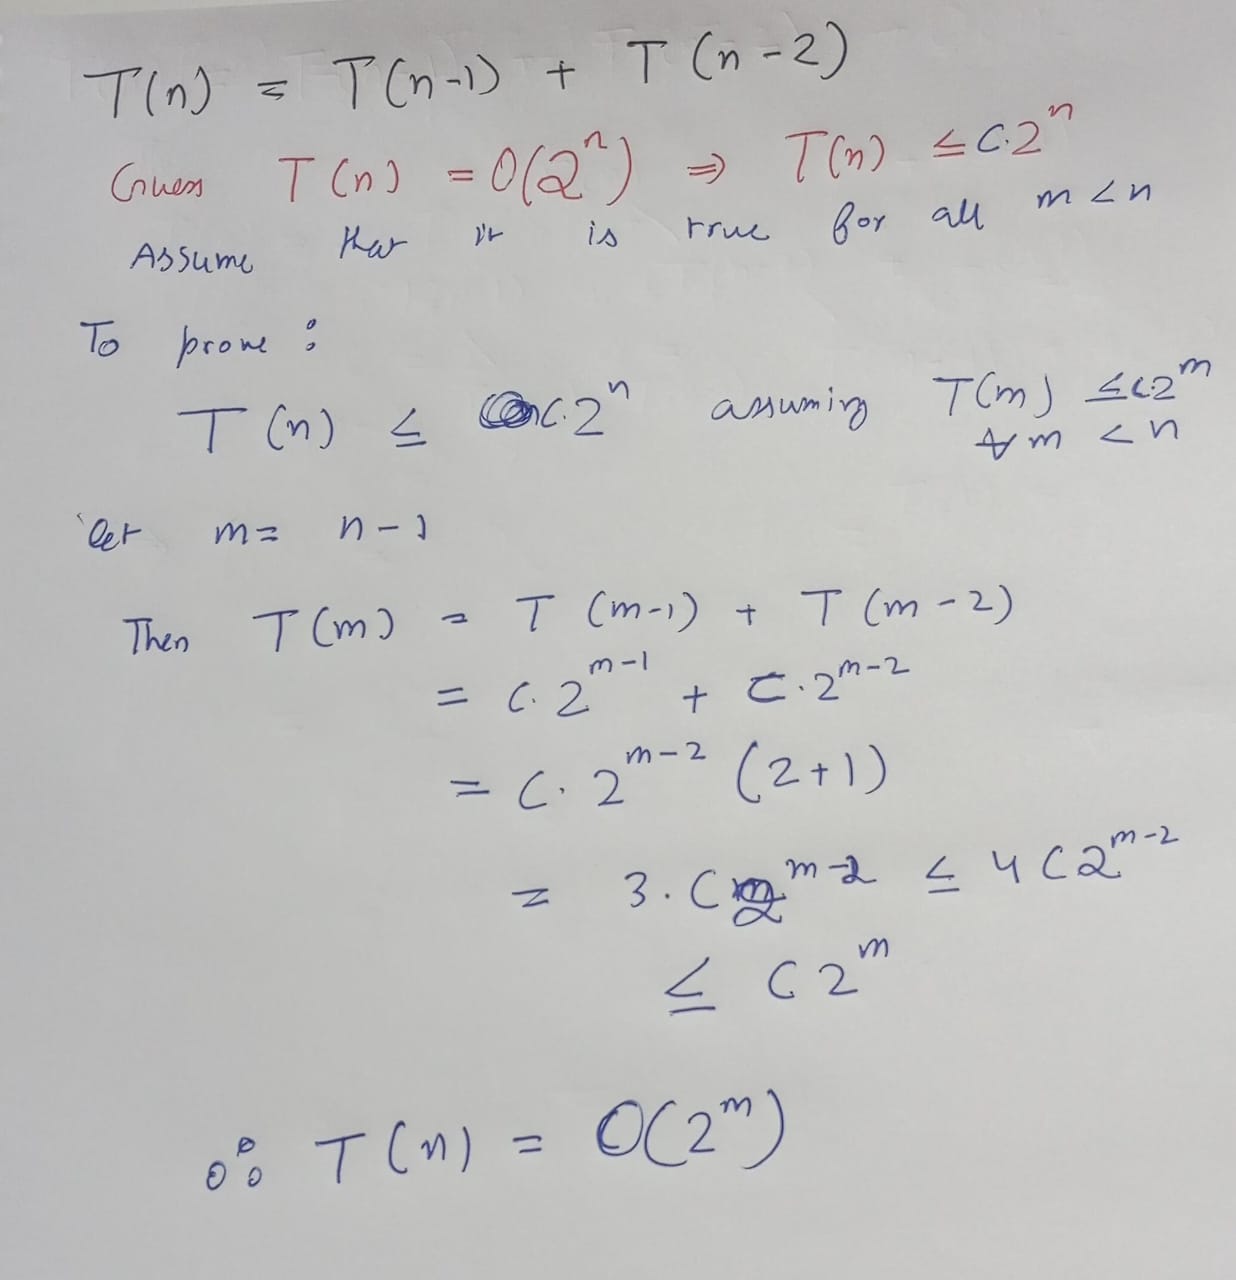 T(n) = T(n-1) + T(n-2)
Guess T(n) = O(2ⁿ) ⇒ T(n) ≤ C.2ⁿ
Assume that it is true for all m < n
To prove :
T(n) ≤ C.2ⁿ assuming T(m) ≤ C2ᵐ
∀ m < n
let m = n-1
Then T(m) = T(m-1) + T(m-2)
= C.2ᵐ⁻¹ + C.2ᵐ⁻²
= C.2ᵐ⁻² (2+1)
= 3.C2ᵐ⁻² ≤ 4C2ᵐ⁻²
≤ C2ᵐ
∴ T(n) = O(2ᵐ)